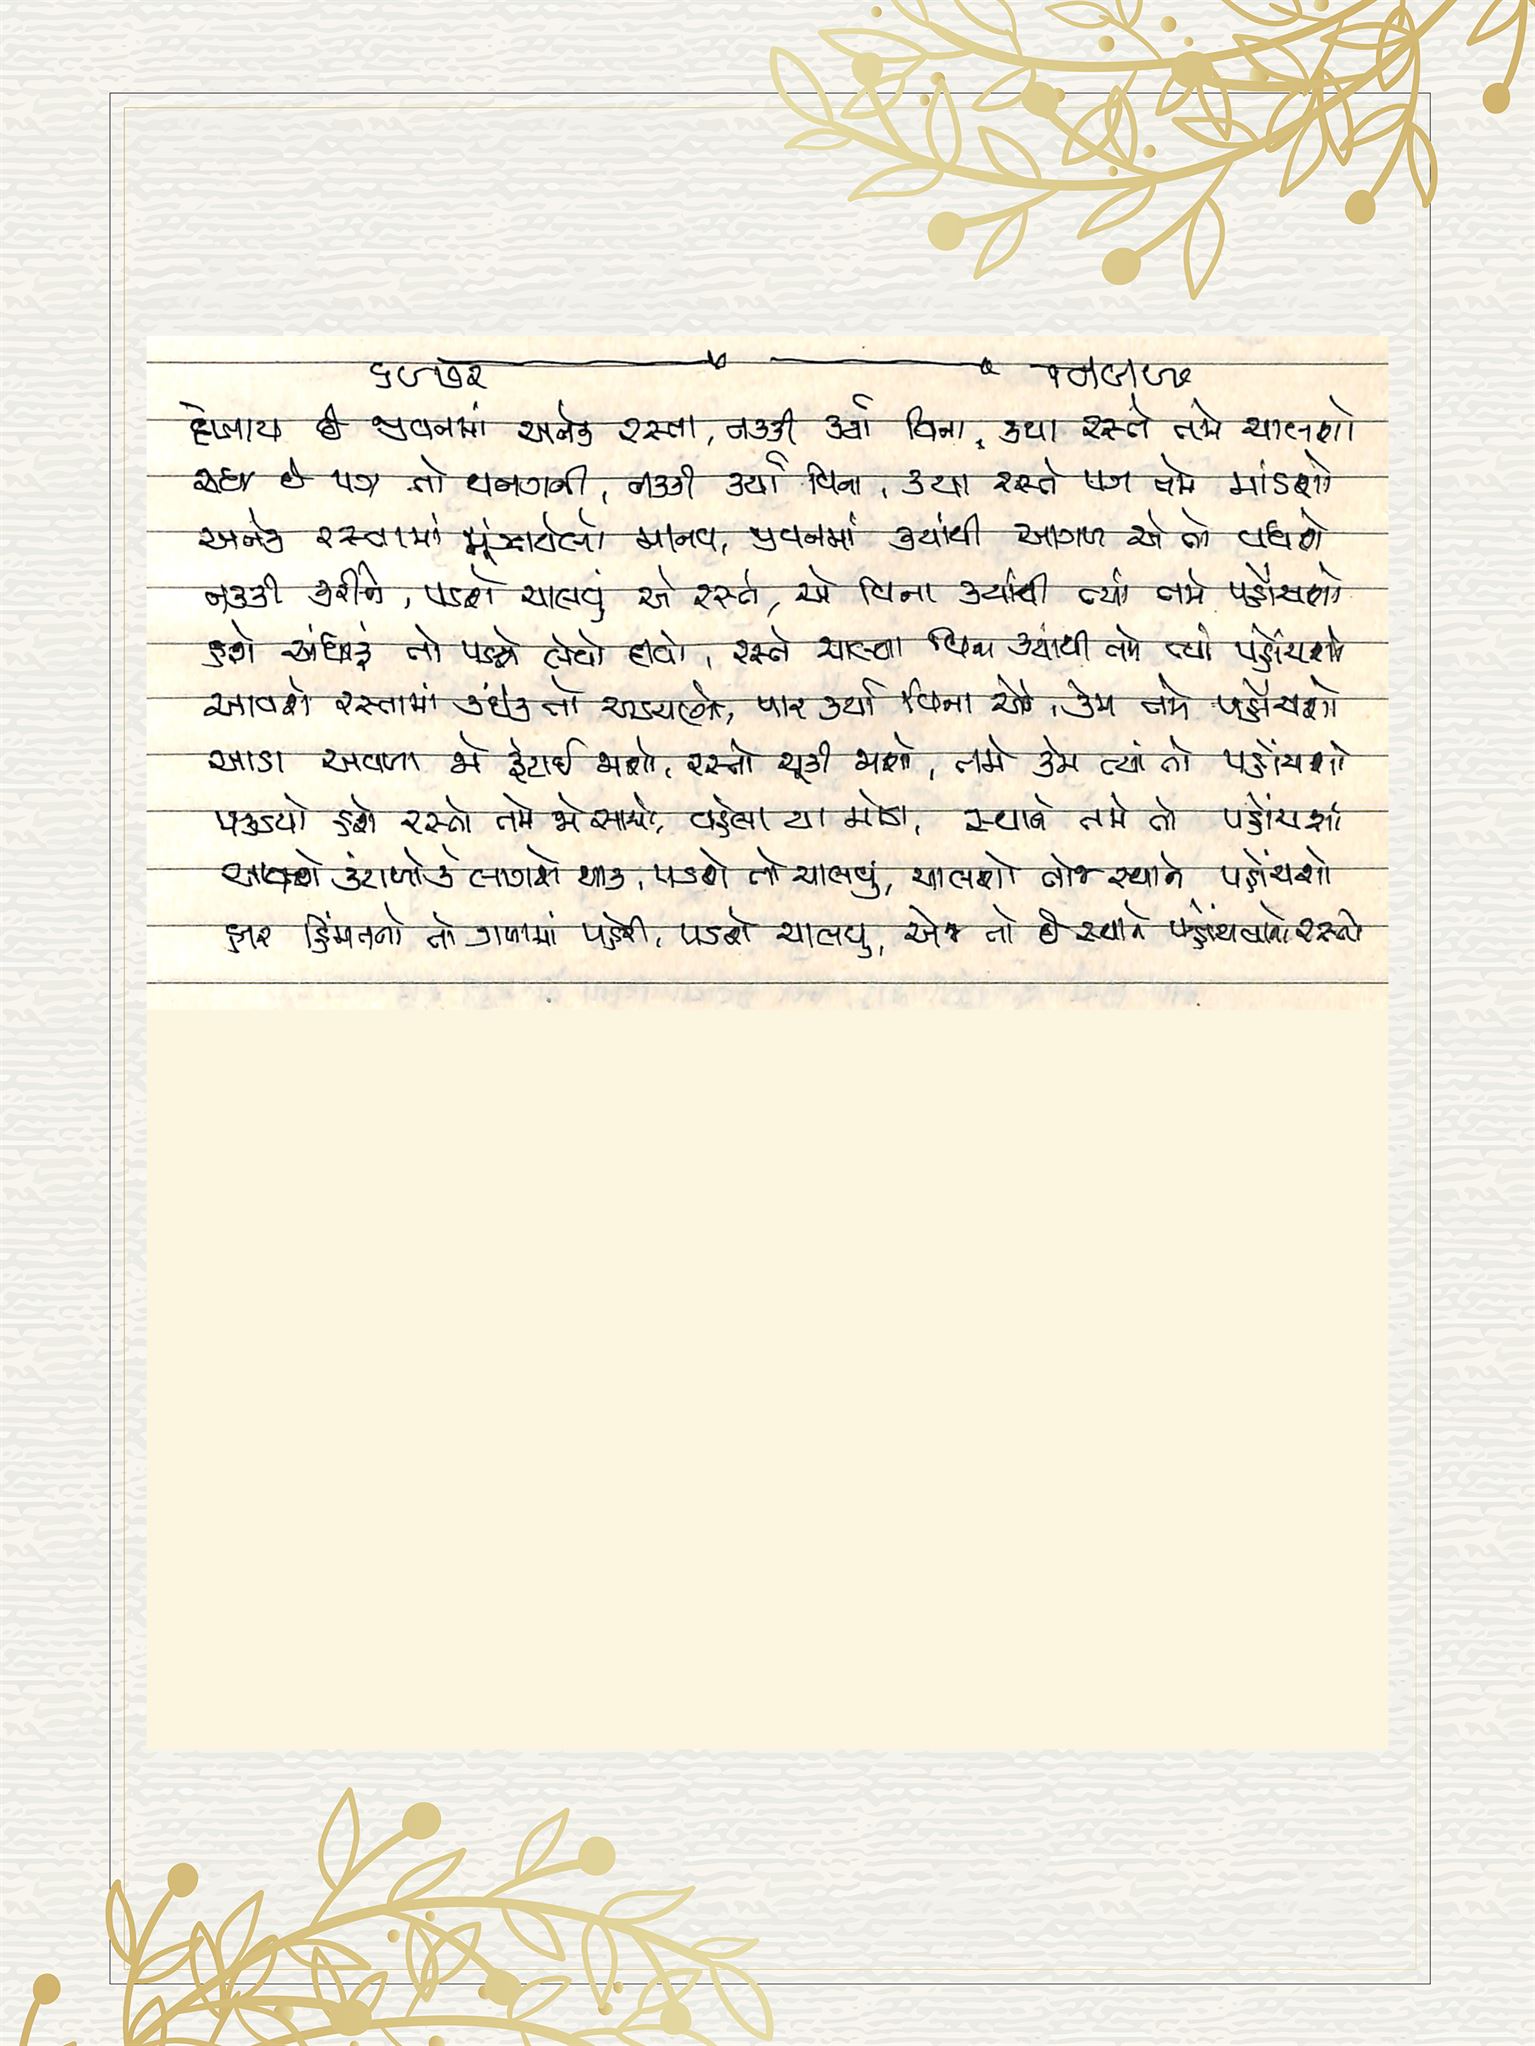 દોલાય છે જીવનમાં અનેક રસ્તા, નક્કી કર્યા વિના, કયા રસ્તે તમે ચાલશો
સદા છે પગ તો થનગની, નક્કી કર્યા વિના, કયા રસ્તે પગ તમે માંડશો
અનેક રસ્તામાં મૂંઝાયેલો માનવ, જીવનમાં ક્યાંથી આગળ એ તો વધશે
નક્કી કરીને, પડશે ચાલવું એ રસ્તે, એ વિના ક્યાંથી ત્યાં તમે પહોંચશો
હશે અંધારું તો પડશે લેવો દીવો, રસ્તે ચાલ્યા વિના ક્યાંથી તમે ત્યાં પહોંચશો
આવશે રસ્તામાં કંઈક તો અડચણો, પાર કર્યા વિના એને, કેમ તમે પહોંચશો
આડા અવળા જો ફંટાઈ જાશો, રસ્તો ચૂકી જાશો, તમે કેમ ત્યાં તો પહોંચશો
પકડ્યો હશે રસ્તો તમે જો સાચો, વહેલા યા મોડા, સ્થાને તમે તો પહોંચશો
આવશે કંટાળો કે લાગશે થાક, પડશે તો ચાલવું, ચાલશો તોજ સ્થાને પહોંચશો
હાર હિંમતનો તો ગળામાં પહેરી, પડશે ચાલવુ, એજ તો છે સ્થાને પહોંચવાનો રસ્તો